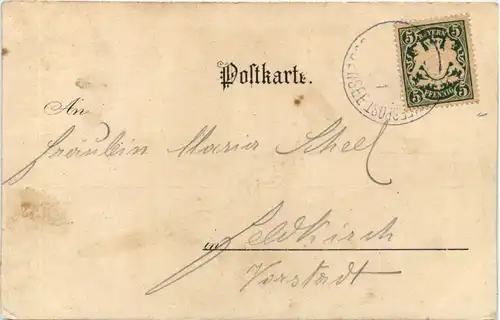 BAYERN
5 5
5 PFENNIG 5
Postkarte.
An
Fräulein Maria Scheel
in Feldkirch
Vorstadt